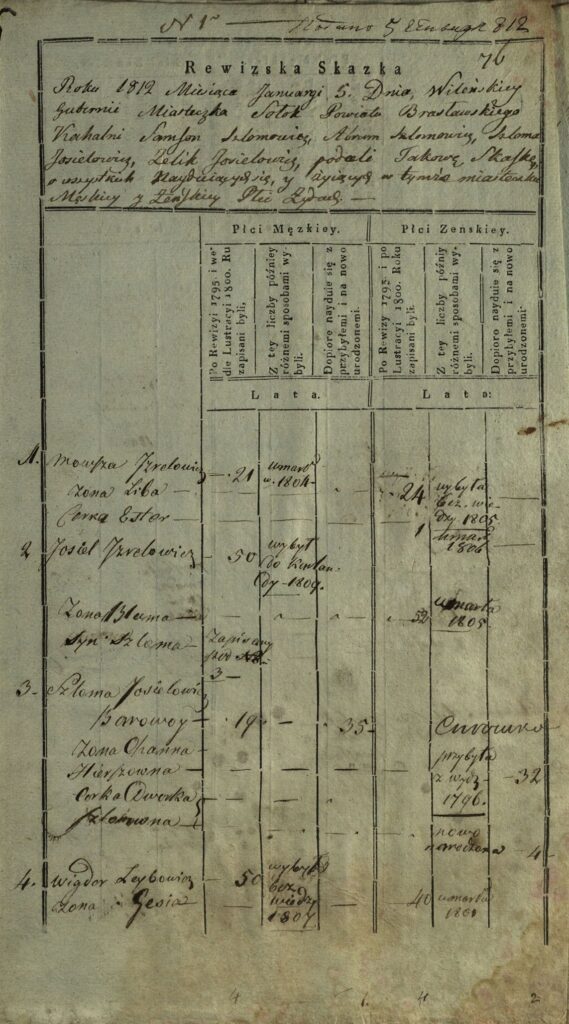 N 1
5 812
76
Rewizska Skazka
Roku 1812 Miesiąca Januaryi 5. Dnia, Wileńskiey
Gubernii Miasteczka Sołok Powiatu Brasławskiego
Kiahalni Samson Szlomowicz, Abram Szlomowicz, Szloma
Josielowicz, Zelik Josielowicz, podali Takową Skaskę,
o wszystkich Znayduiącychsię, y żyiących w tymże miasteczku
Męskiey y Żeńskiey Płci Żydach. —
Płci Męzkiey.
Płci Zenskiey.
Po Rewizyi 1795 i we-
dle Lustracyi 1800. Ru
zapisani byli.
Z tey liczby póżniey
różnemi sposobami wy-
byli.
Dopioro nayduie się z
przybyłemi i na nowo
urodzonemi.
Po Rewizy 1795 i po
Lustracyi 1800. Roku
zapisani byli.
Z tey liczby póżniy
różnemi sposobami wy-
byli.
Dopioro nayduie się z
przybyłemi i na nowo
urodzonemi.
Lata.
Lata:
1. Mowsza Izrelowicz — 21 umarł
w. 1804 —
Żona Liba — 24 wybyła
bez wie-
dzy 1805
Corka Ester — 1 umarł
1806
2 Josiel Izrelowicz — 50 wybył
do Kurlan-
dy — 1809.
Żona Bluma — 52 umarła
1805
Syn Szloma — Zapisany
pod N
3 —
3 — Szloma Josielowicz
Borowoy — 19 — 35 —
Żona Channa —
Hirszowna — przybyła
z wydz
1796. — 32
Corka Dworka
Szlomowna — nowo
narodzona — 4 —
4. Wigdor Leybowicz — 50 wybył
bez
wiedzy
1807
Żona Gesia — 40 umarła
1801
4 — 1. 4 2